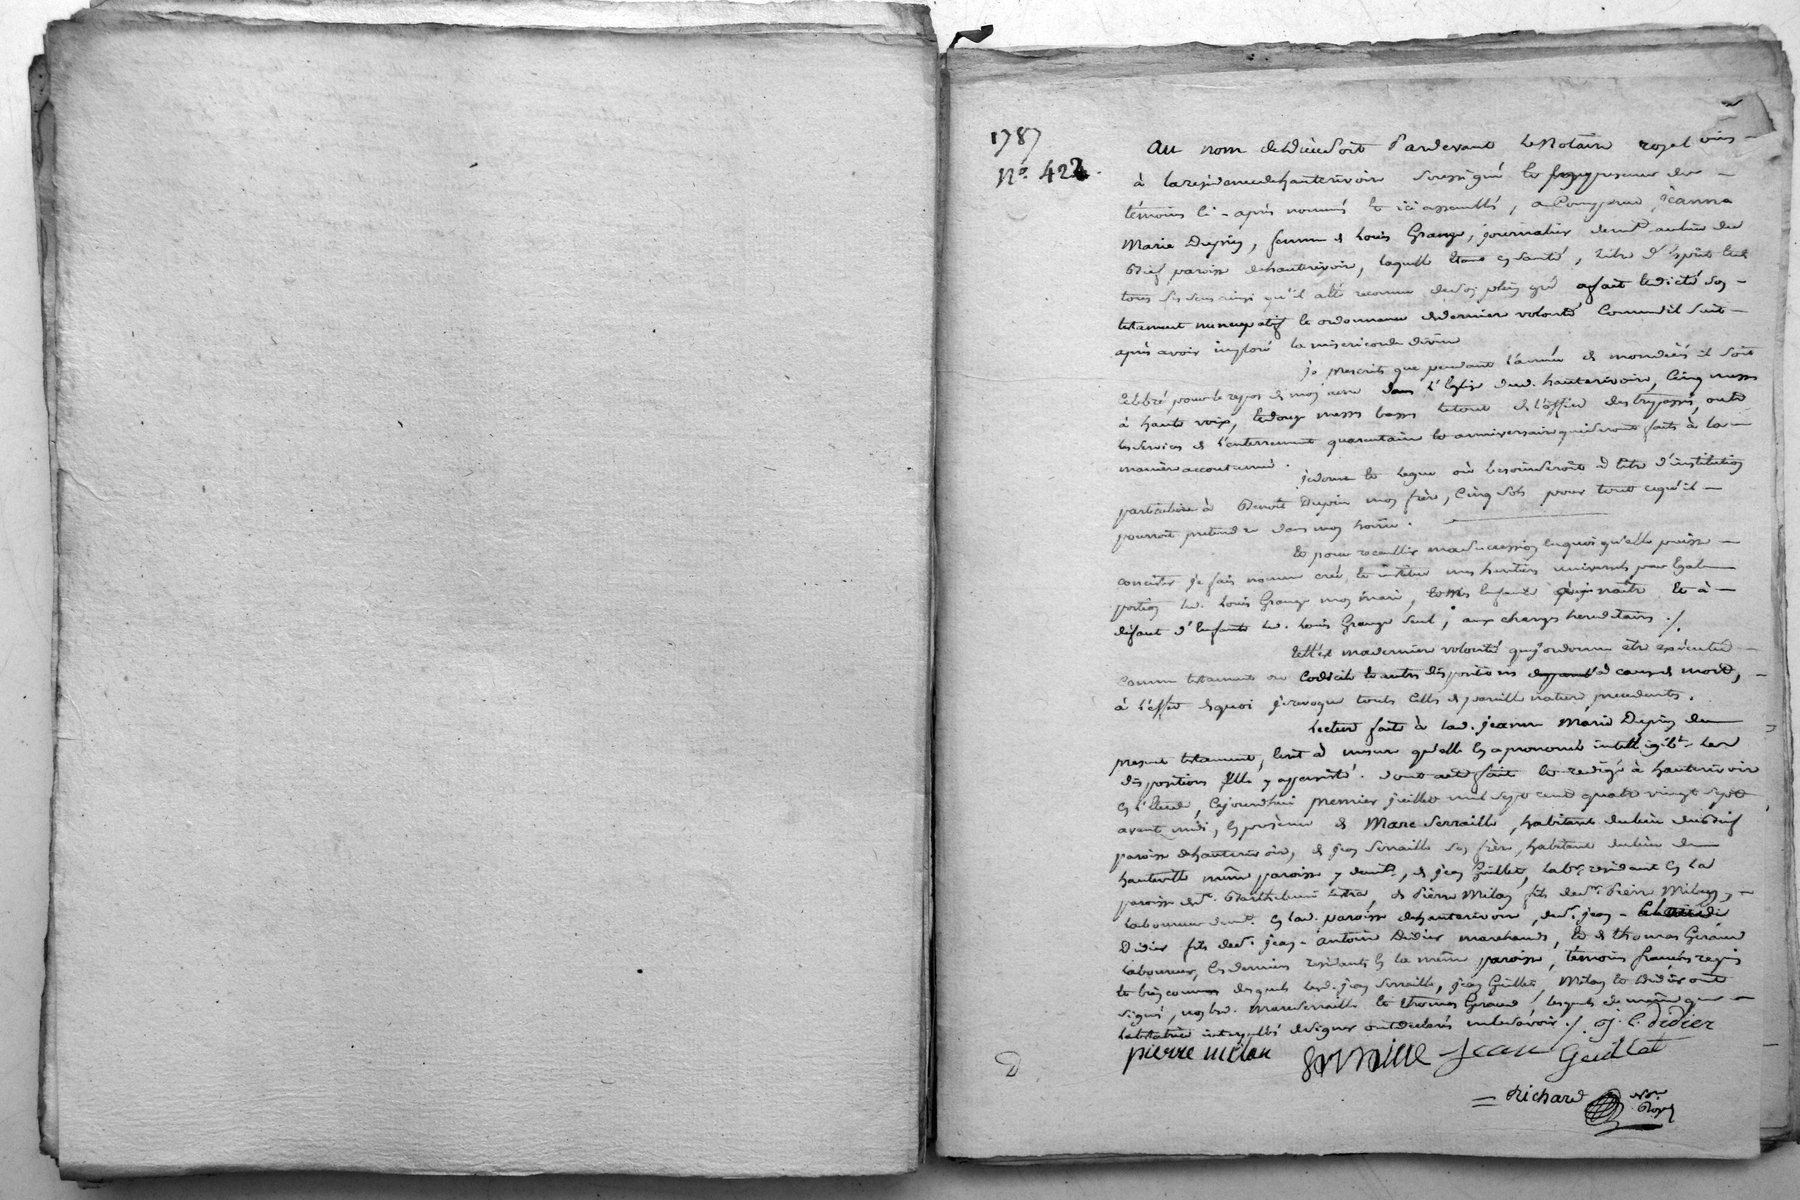 1787
N.º 422.
Au nom de Dieu soit Pardevant Le Notaire royal
à la residence de hauterivoir soussigné Et presence des
témoins Ci-après nommés Et ici assemblés, a Comparue jeanne
Marie Dupin, femme de Louis Grange, journalier demt au lieu du
Brief paroisse de hauterivoir, laquelle Etant En santé, Libre d'Esprit Et de
tous ses sens ainsi qu'il a été reconnu de son plein gré a fait Et dicté son
testament nuncupatif Et ordonnance de derniere volonté Comme il suit
après avoir imploré la misericorde divine
je prescrits que pendant l'année de mon décès il soit
Célébré pour le repos de mon ame dans l'Eglise dud. hauterivoire, Cinq messes
à haute voix, Et douze messes basses Le tout de l'office des trepassés, outre
les services de l'enterrement quarantaine Et anniversaire qui seront faits à la
maniere accoutumée.
je donne Et legue où besoin seroit à titre d'institution
particuliere à Benoit Dupin mon frère, Cinq sols pour tout ce qu'il
pourroit pretendre dans mon hoirie.
Et pour recueillir ma succession En quoi qu'elle puisse
consister je fais nomme créé, Et institue mes heritiers universels par Egale
portion led. Louis Grange mon mari, Et mes Enfants à naître Et à
défaut d'Enfants led. Louis Grange seul; aux charges hereditaires./.
telle est ma derniere volonté que j'ordonne etre exécutée
Comme testament ou Codicile Et autres dispositions à cause de mort,
à l'effet de quoi je revoque toutes Celles de pareille nature precedentes.
Lecture faite à lad. jeanne Marie Dupin du
present testament, Ecrit à mesure qu'elle En a prononcé intelligiblt les
dispositions Elle y a persisté. dont acte fait Et redigé à hauterivoir
En l'Etude, Cejourdhui premier juillet mil sept cent quatre vingt sept
avant midi, En présence de Marc Serraille, habitant du lieu du Brief
paroisse de hauterivoire, de jean Serraille son frère, habitant du lieu de
hauteville même paroisse y demt., de jean Guillet, labr. residant En la
paroisse de St. Barthelemi Lestra, de Pierre Milan fils de sr. Pierre Milan,
Laboureur demt. En lad. paroisse de hauterivoir, de sr. jean-
Didier fils de sr. jean-antoine Didier marchand, Et de thomas Geraud
Laboureur, Ces derniers residants En la même paroisse, temoins
Et bien connus desquels lesd. jean Serraille, jean Guillet, Milan Et Didier ont
signé, non led. Marc Serraille Et thomas Geraud, lesquels de même que
la testatrice interpellés de signer ont déclaré ne le savoir./. j. C. Didier
pierre milan Serraille jean Guillet
= Richard nre. Royal